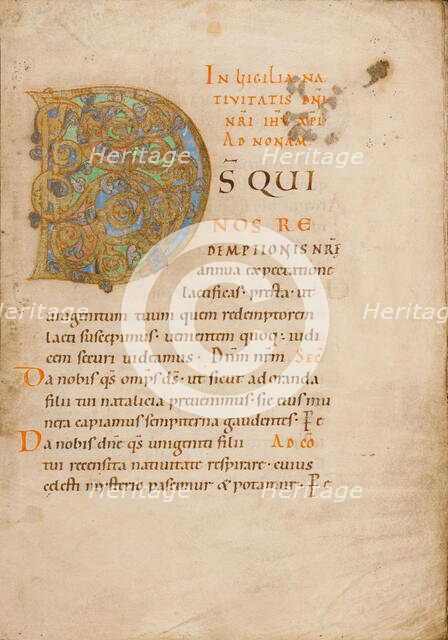 IN VIGILIA NA
TIVITATIS DNI
NRI IHV XPI
AD NONAM
D S̄ QUI
NOS RE
DEMPTIONIS NR̄E
annua expectatione
laetificas · presta · ut
unigenitum tuum quem redemptorem
laeti suscepimus · venientem quoq; iudi
cem securi videamus · Dn̄m nr̄m SEC̄
Da nobis qs̄ omp̄s ds̄ · ut sicut adoranda
filii tui natalicia prevenimus · sic eius mu
nera capiamus sempiterna gaudentes · P̄
Da nobis dn̄e qs̄ unigeniti filii AD CŌ
tui recensita nativitate respirare · cuius
celesti mysterio pascimur · & potamur · P̄
Heritage
Heritage
Heritage
Heritage
Heritage
Heritage